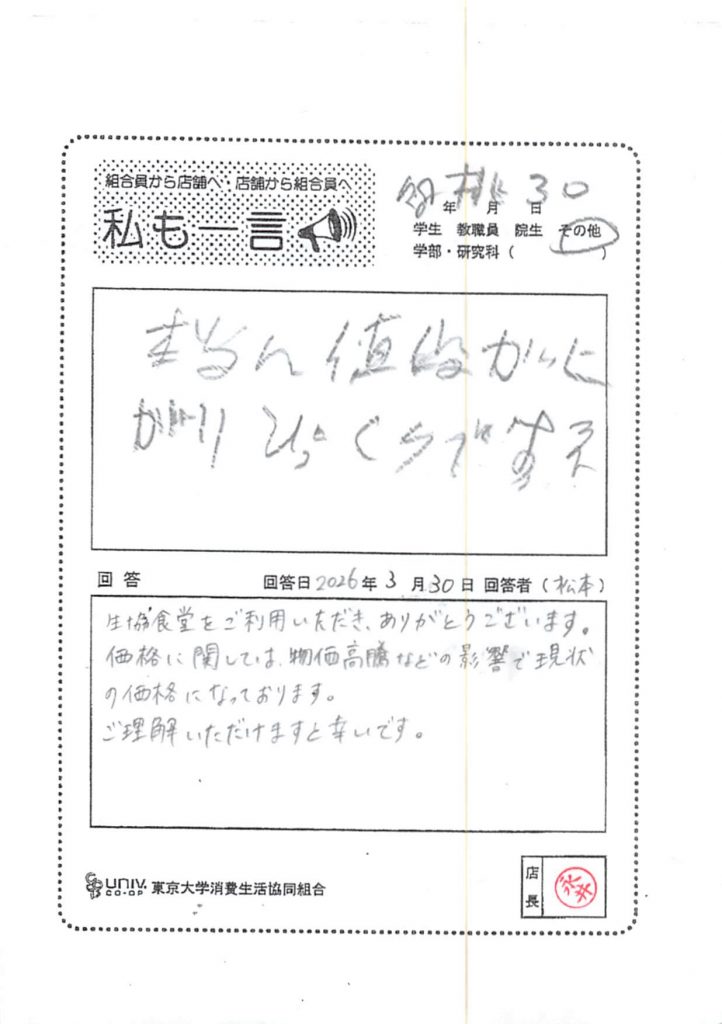 組合員から店舗へ・店舗から組合員へ
私も一言
30
年 月 日
学生 教職員 院生 その他
学部・研究科( )
値段が
がり びっくりです
回答 回答日2026年3月30日 回答者(松本)
生協食堂をご利用いただき、ありがとうございます。
価格に関しては、物価高騰などの影響で現状
の価格になっております。
ご理解いただけますと幸いです。
UNIV. CO-OP 東京大学消費生活協同組合
店長
永井